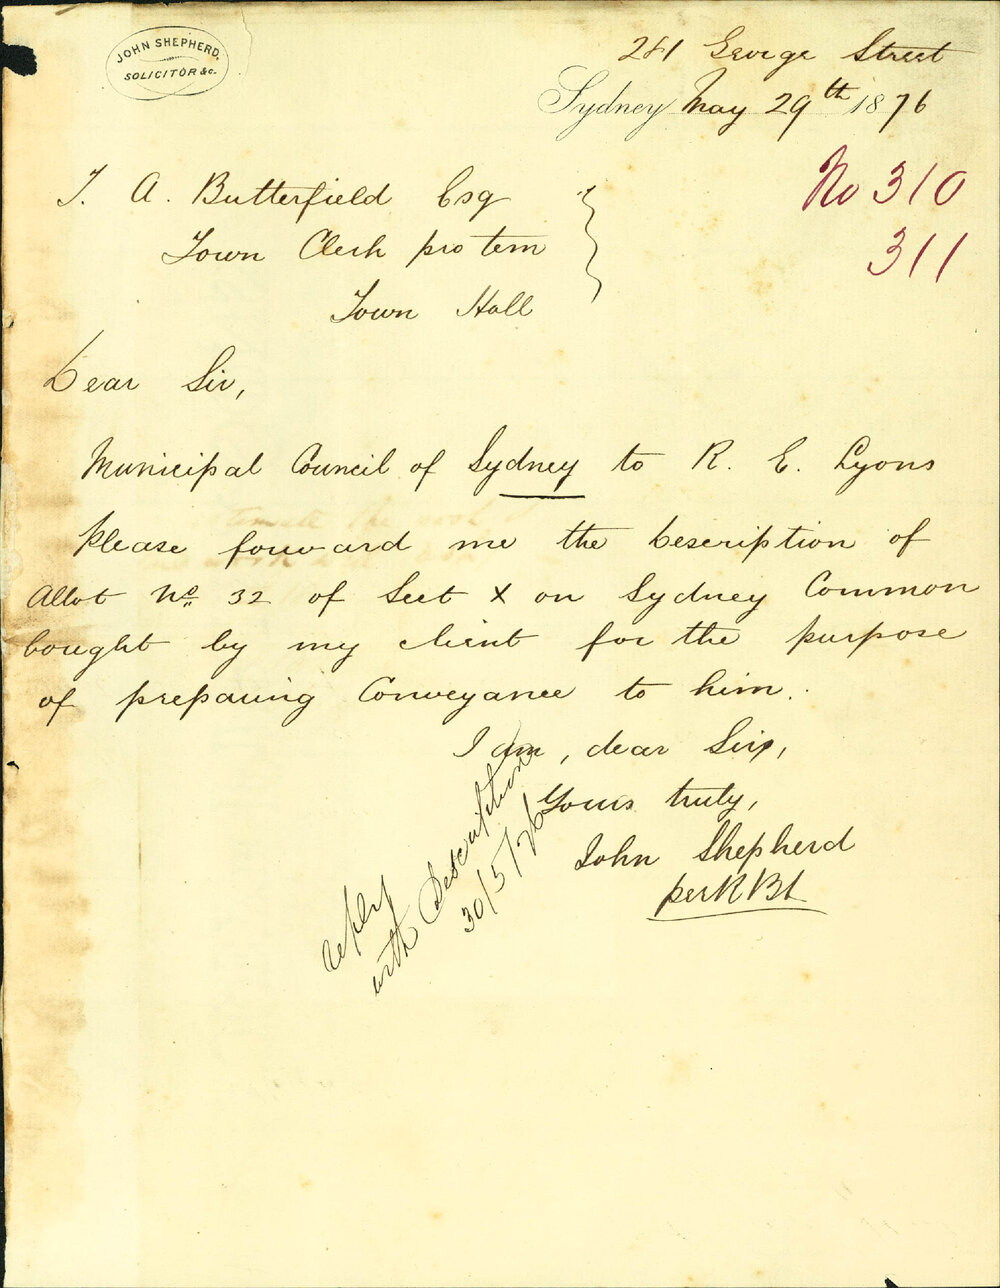 JOHN SHEPHERD,
SOLICITOR &c.
241 George Street
Sydney May 29th 1876
No 310
311
T. A. Butterfield Esq
Town Clerk pro tem
Town Hall
Dear Sir,
Municipal Council of Sydney to R. E. Lyons
Please forward me the Description of
Allot No. 32 of Sect X on Sydney Common
bought by my client for the purpose
of preparing Conveyance to him.
I am, dear Sir,
Yours truly,
John Shepherd
per
reply
with Description
30/5/76